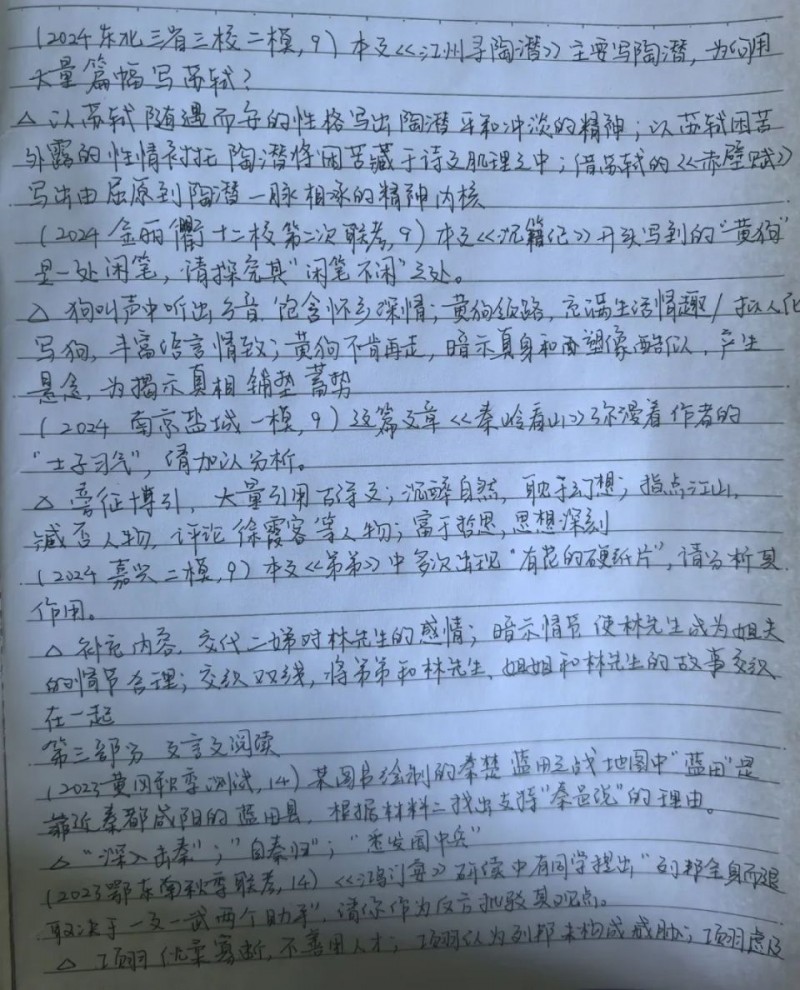 (2024东北三省三校二模,9)本文《江州寻陶潜》主要写陶潜,为何用
大量篇幅写苏轼?
△以苏轼随遇而安的性格写出陶潜平和冲淡的精神;以苏轼困苦
外露的性情衬托陶潜将困苦藏于诗文肌理之中;借苏轼的《赤壁赋》
写出由屈原到陶潜一脉相承的精神内核
(2024金丽衢十二校第二次联考,9)本文《沉籍记》开头写到的“黄狗”
是一处闲笔,请探究其“闲笔不闲”之处。
△狗叫声中听出乡音,饱含怀乡深情;黄狗纵路,充满生活情趣/拟人化
写狗,丰富语言情致;黄狗不肯再走,暗示真身和面塑像酷似,产生
悬念,为揭示真相铺垫蓄势
(2024南京盐城一模,9)这篇文章《秦岭看山》弥漫着作者的
“士子习气”,请加以分析。
△旁征博引,大量引用古诗文;沉醉自然,耽于幻想;指点江山,
臧否人物,评论徐霞客等人物;富于哲思,思想深刻
(2024嘉兴二模,9)本文《弟弟》中多次出现“有花的硬纸片”,请分析其
作用。
△补充内容,交代二娣对林先生的感情;暗示情节,使林先生成为姐夫
的情节合理;交织双线,将弟弟和林先生、姐姐和林先生的故事交织
在一起
第三部分 文言文阅读
(2023黄冈秋季测试,14)某图书绘制的秦楚蓝田之战地图中“蓝田”是
靠近秦都咸阳的蓝田县,根据材料二找出支持“秦县说”的理由。
△“深入击秦”;“自秦归”;“悉发国中兵”
(2023鄂东南秋季联考,14)《鸿门宴》研读中有同学提出,“刘邦全身而退
取决于一文一武两个助手”,请你作为反方批驳其观点。
△项羽优柔寡断,不善用人才;项羽认为刘邦未构成威胁;项羽虑及